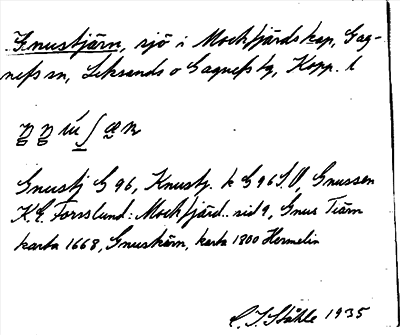 Gnustjärn, sjö i Mockfjärds kap, Gag-
nefs sn, Leksands o Gagnefs tg, Kopp. l
Gnustj G 96, Knustj. k G 96 S.V, Gnussen
K.E. Forslund: Mockfjärd.. sid 9, Gnus Tiärn
karta 1668, Gnuskärn, karta 1800 Hermelin
Ståhle 1935